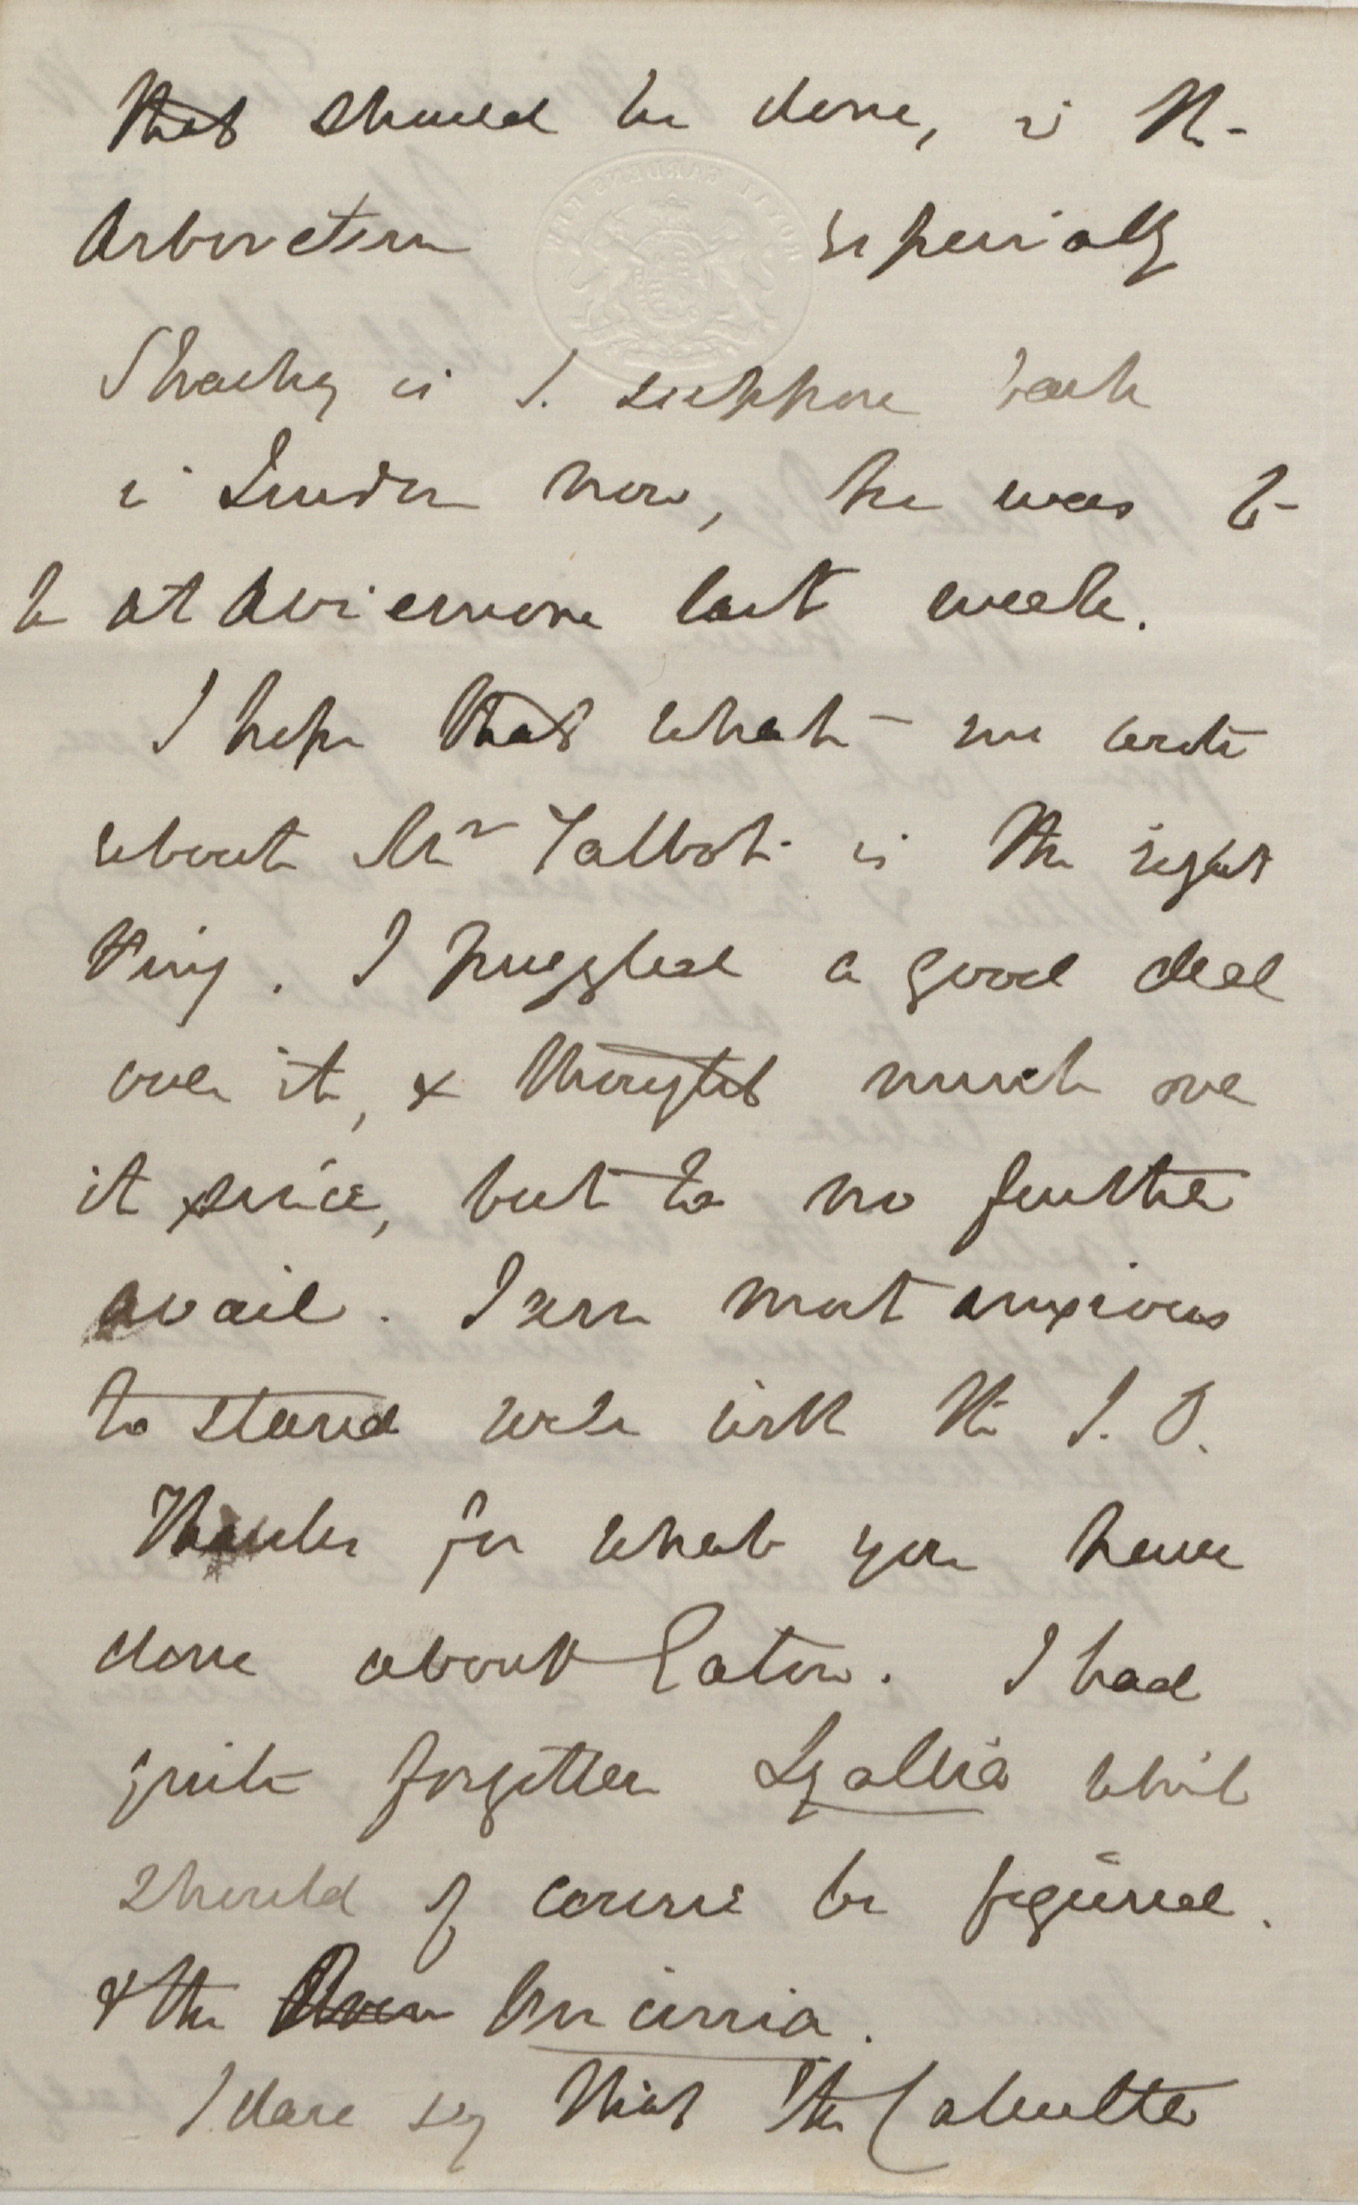 that should be done, in the
Arboretum especially
ROYAL GARDENS KEW
Strachey is I suppose back
in London now, he was to
be at Aviemore last week.
I hope that what we wrote
about Mr Talbot is the right
thing. I puzzled a good deal
over it, & thought much over
it since, but to no further
avail. I am most anxious
to stand well with the I. O.
Thanks for what you have
done about Eaton. I had
quite forgotten Lyallia which
should of course be figured.
& the
I dare say that the Calcutta